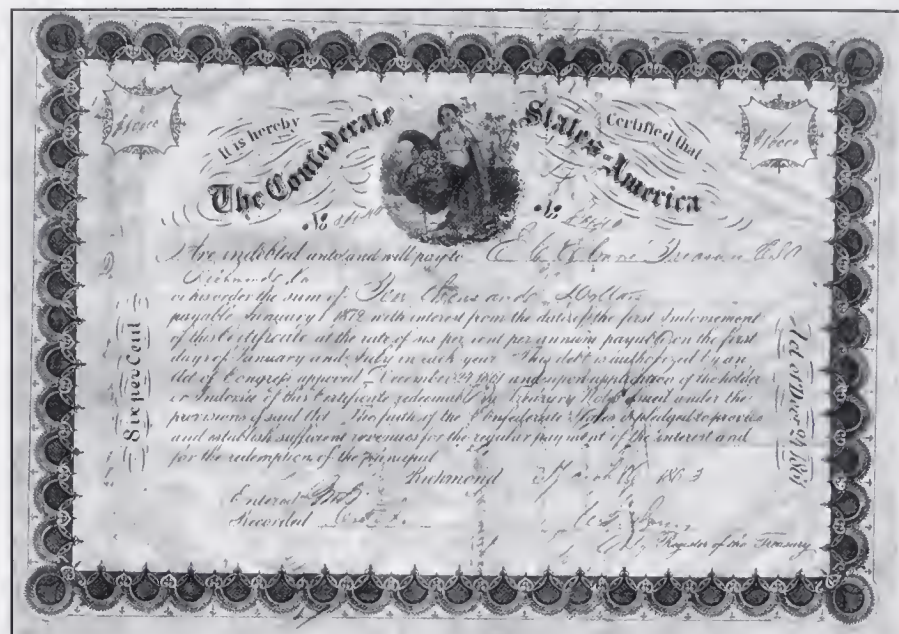 $10000
$10000
It is hereby Certified that
The Confederate States of America
No No
Are indebted unto and will pay to E. C. Elmore Treasurer CSA
Richmond Va
or his order the sum of Ten Thousand Dollars
payable January 1 1872 with interest from the date of the first Indorsement
of this Certificate at the rate of six per cent per annum payable on the first
days of January and July in each year This debt is authorized by an
Act of Congress approved December 24 1861 and upon application of the holder
or Indorsee of this Certificate redeemable in Treasury Notes issued under the
provisions of said Act The faith of the Confederate States is pledged to provide
and establish sufficient revenues for the regular payment of the interest and
for the redemption of the principal
Richmond 1863
Entered
Recorded
Register of the Treasury
Six per Cent
Act of Decr 24 1861